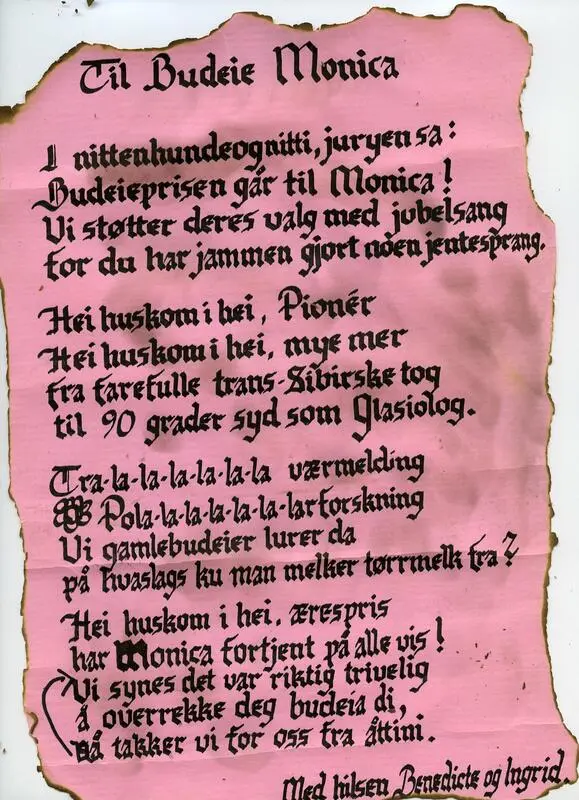 Til Budeie Monica
I nittenhundeognitti, juryen sa:
Budeieprisen går til Monica!
Vi støtter deres valg med jubelsang
for du har jammen gjort noen jentesprang.
Hei huskom i hei, Pionér
Hei huskom i hei, mye mer
fra farefulle trans-Sibirske tog
til 90 grader syd som Glasiolog.
Tra-la-la-la-la-la-la værmelding
og Pola-la-la-la-la-la-larforskning
Vi gamlebudeier lurer da
på hvaslags ku man melker tørrmelk fra?
Hei huskom i hei, ærespris
har Monica fortjent på alle vis!
Vi synes det var riktig trivelig
å overrekke deg budeia di,
nå takker vi for oss fra åttini.
Med hilsen Benedicte og Ingrid.